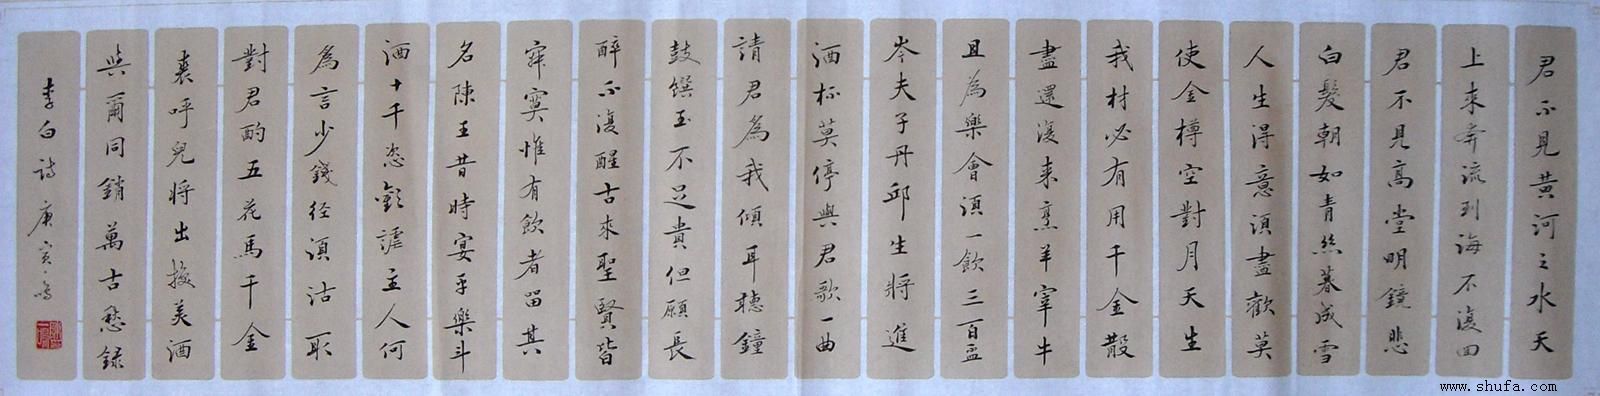 君不見黃河之水天
上來奔流到海不復回
君不見高堂明鏡悲
白髮朝如青絲暮成雪
人生得意須盡歡莫
使金樽空對月天生
我材必有用千金散
盡還復來烹羊宰牛
且為樂會須一飲三百盃
岑夫子丹邱生將進
酒杯莫停與君歌一曲
請君為我傾耳聽鐘
鼓饌玉不足貴但願長
醉不復醒古來聖賢皆
寂寞惟有飲者留其
名陳王昔時宴平樂斗
酒十千恣歡謔主人何
為言少錢徑須沽取
對君酌五花馬千金
裘呼兒將出換美酒
與爾同銷萬古愁錄
李白詩庚寅
www.shufa.com